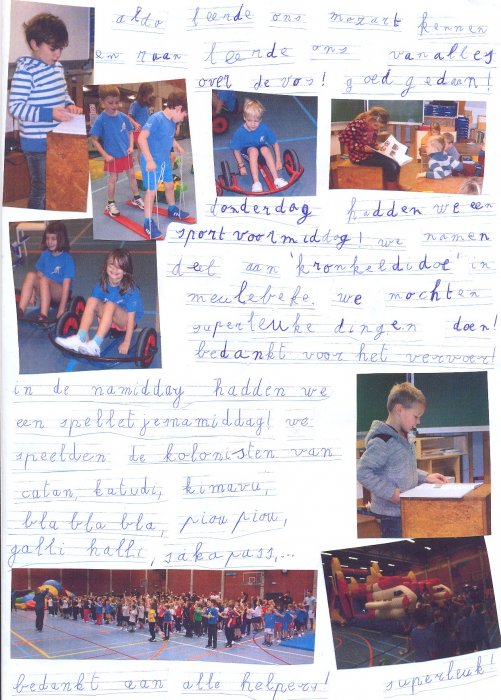 aldo leerde ons mozart kennen
en daan leerde ons van alles
over de vos! goed gedaan!
donderdag hadden we een
sportvoormiddag! we namen
deel aan 'kronkeldidoe' in
meulebeke. we mochten
superleuke dingen doen!
bedankt voor het vervoer!
in de namiddag hadden we
een spelletjesnamiddag! we
speelden de kolonisten van
catan, katudi, kimavu,
bla bla bla, piou piou,
galli halli, sakapuss,...
bedankt aan alle helpers!
superleuk!